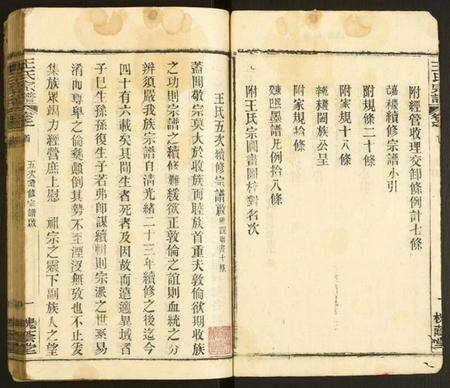 王氏宗譜
附經管收理交卸條例計七條
續修宗譜小引
附規條二十條
附家規十八條
族公呈
附家規拾條
墨譜凡例拾八條
附王氏宗圖畫圖
名次
槐蔭堂
王氏五次續修宗譜啟
蓋聞敬宗莫大於收族而睦族首重夫敦倫欲期收族
之功則宗譜之續修難緩欲正敦倫之誼則血統之分
辨須嚴我族宗譜自清光緒二十三年續修之後迄今
四十有六載矣其間生者死者及因故而遠適異域者
子巳生孫孫復生子若弗即謀續輯則宗派之世系易
淆而尊卑之倫彝顛倒其勢不至湮沒無攷也不止爰
集族眾竭力經營庶上慰 祖宗之靈下副族人之望
王氏宗譜
卷之
五次續修宗譜啟
一
槐蔭堂